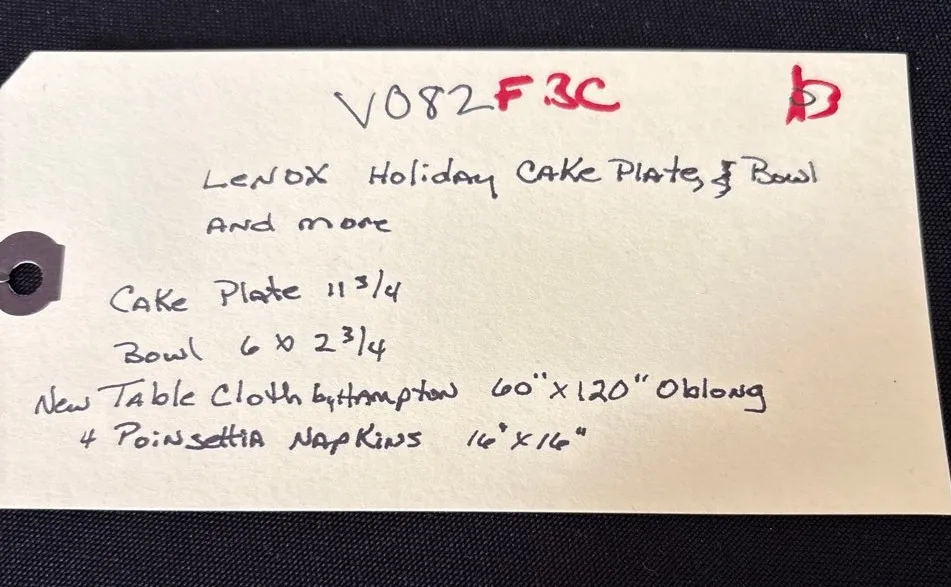 V082 F3C B
LENOX Holiday CAKE Plate, & Bowl
AND more
CAKE Plate 11 3/4
Bowl 6 x 2 3/4
New Table Cloth by Hampton 60" x 120" Oblong
4 Poinsettia NAPKINS 16" x 16"